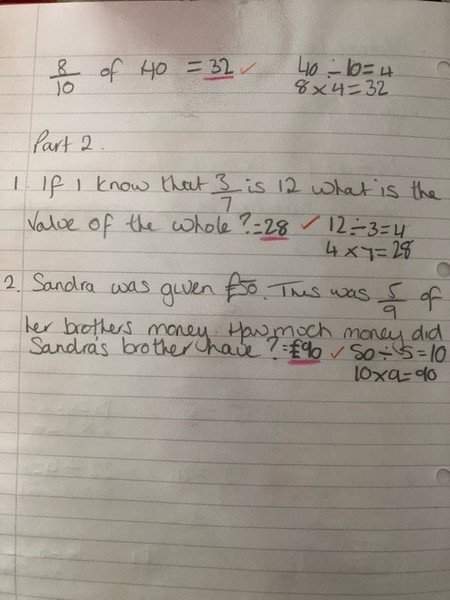 8/10 of 40 = 32 ✓ 40 ÷ 10 = 4
8 x 4 = 32
Part 2.
1. If I know that 3/7 is 12 what is the
value of the whole? = 28 ✓ 12 ÷ 3 = 4
4 x 7 = 28
2. Sandra was given £50. This was 5/9 of
her brothers money. How much money did
Sandra's brother have? = £90 ✓ 50 ÷ 5 = 10
10 x 9 = 90